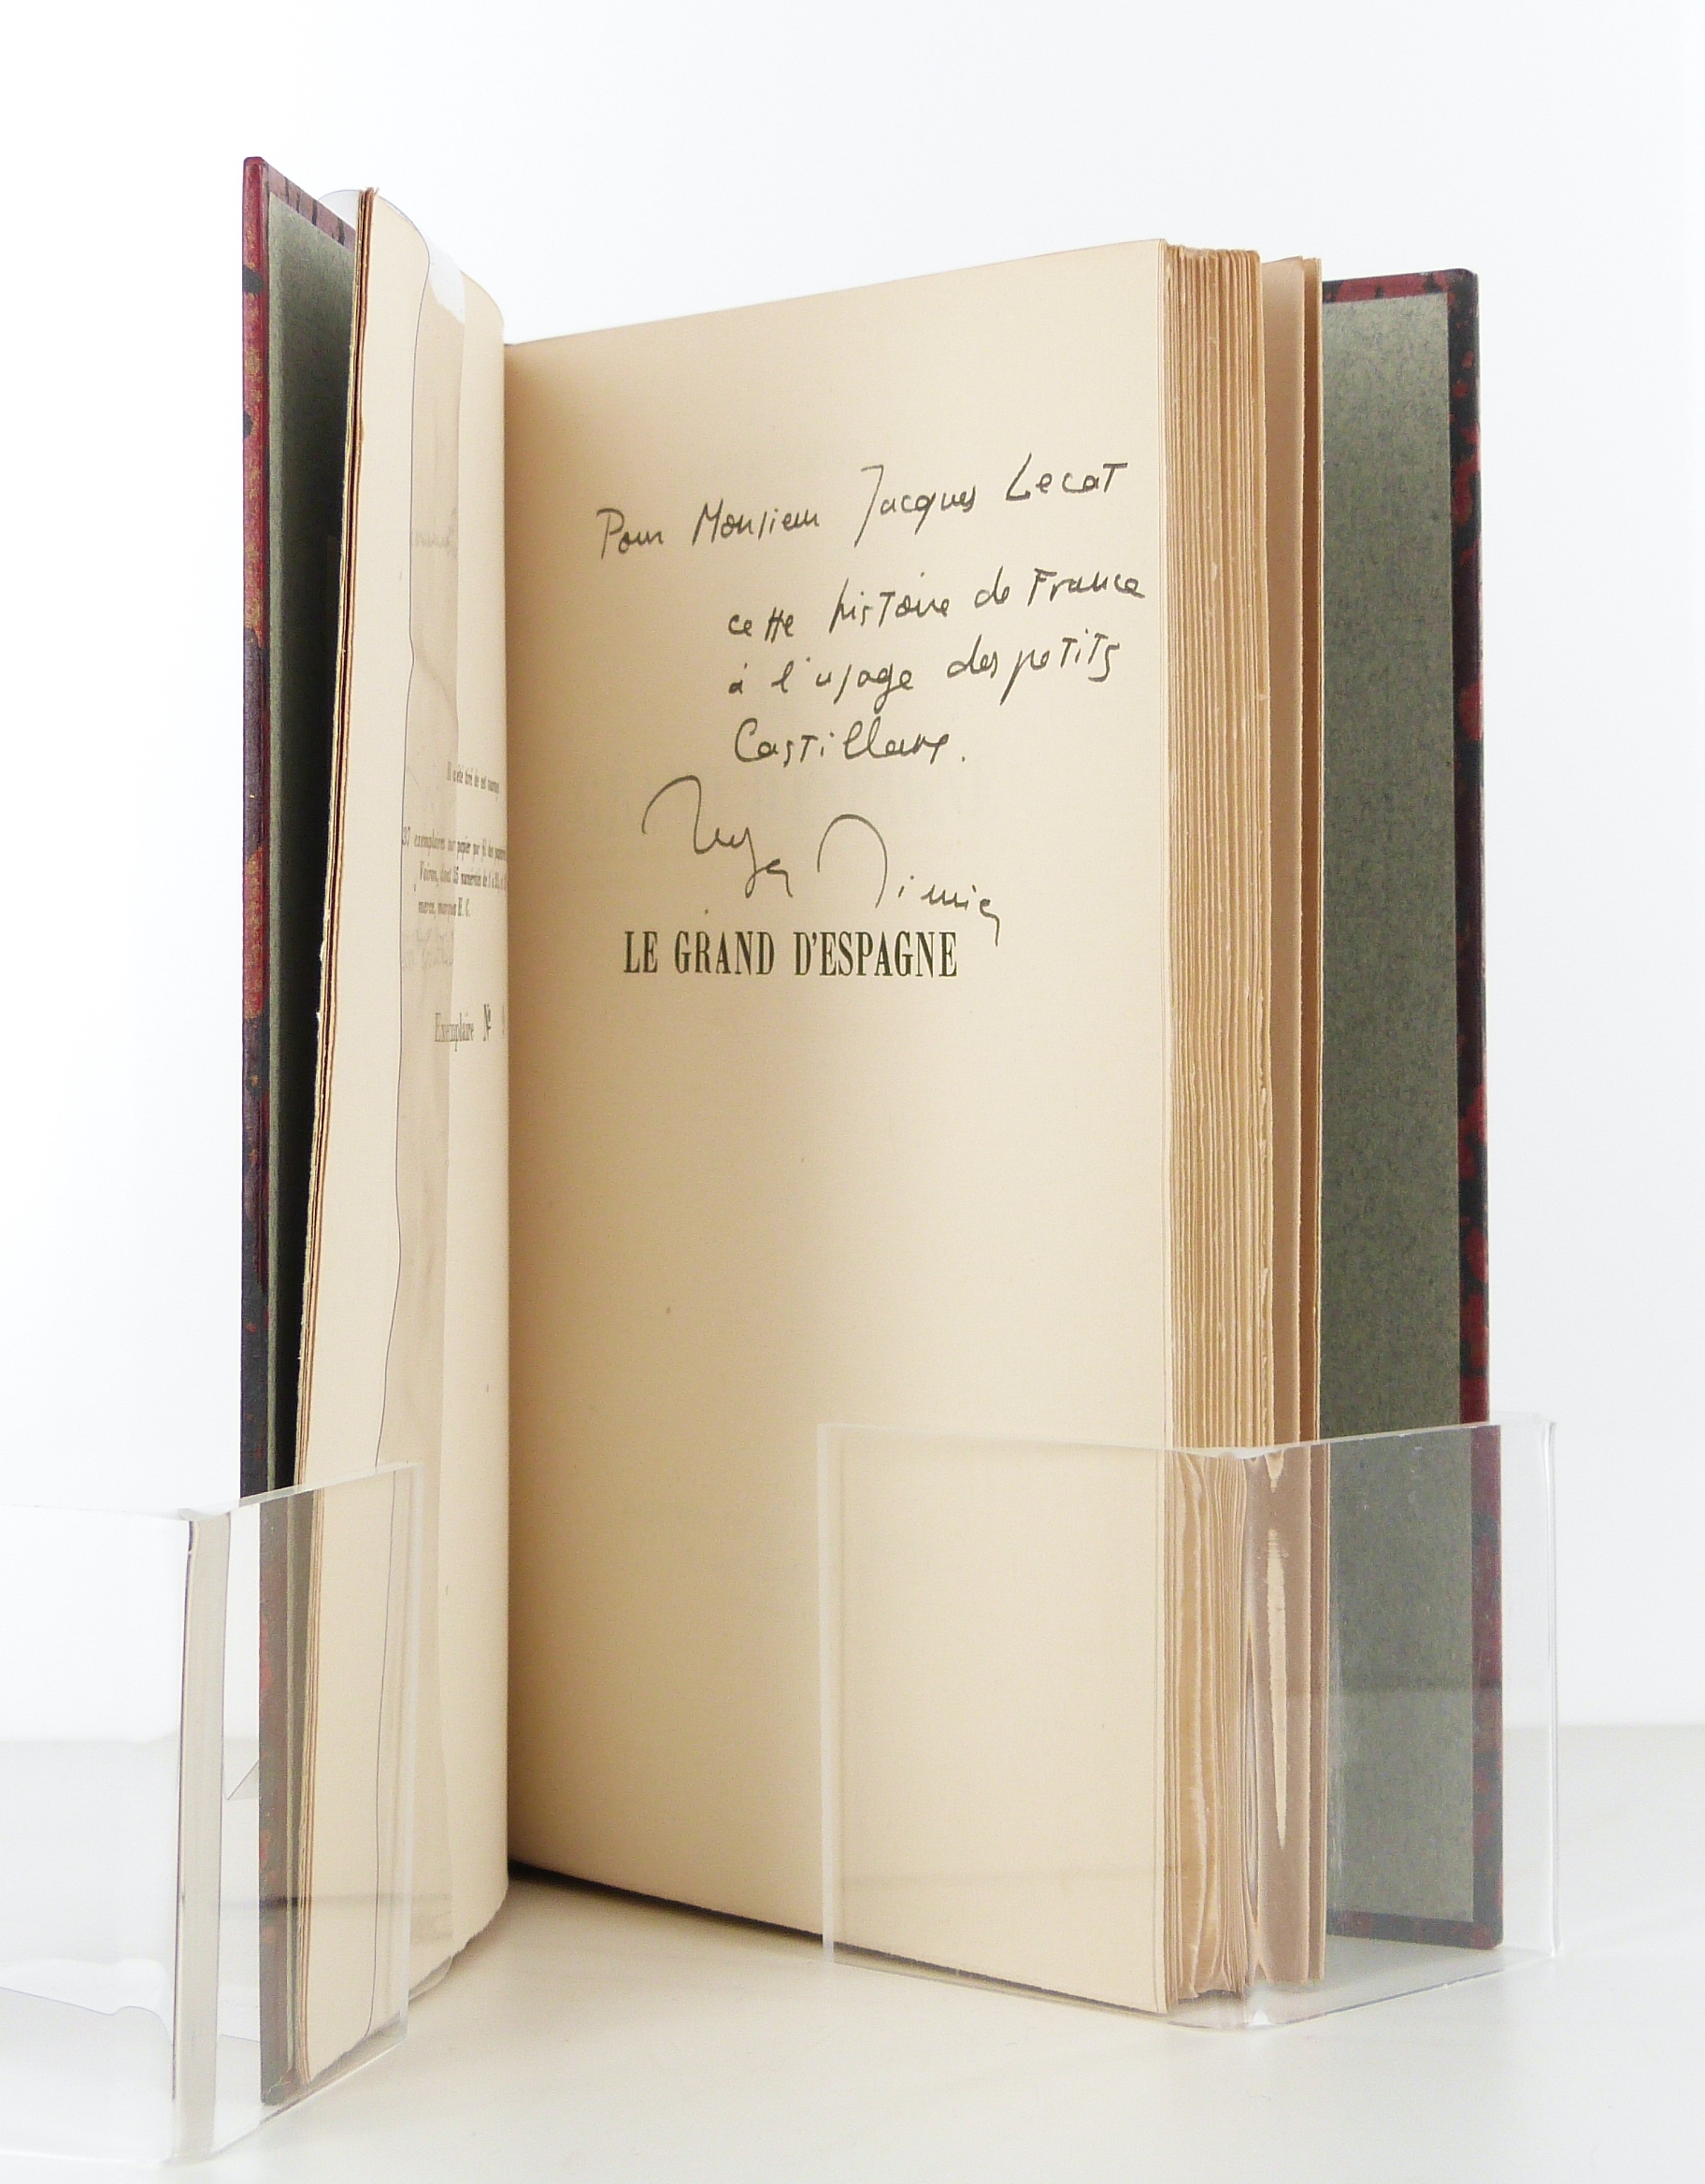 Il a été tiré de cet ouvrage
37 exemplaires sur papier pur fil des
Voiron, dont 25 numérotés de 1 à 25
H. C.
Exemplaire N°
Pour Monsieur Jacques Lecat
cette histoire de France
à l'usage des petits
Castillans.
Roger Nimier
LE GRAND D'ESPAGNE